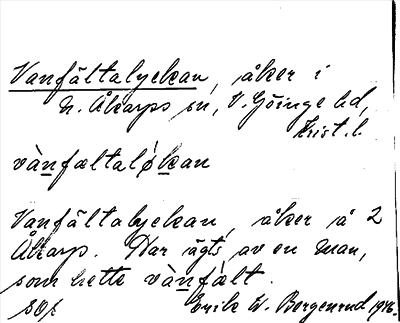 Vanfältalyckan, åker i
N. Åkarps sn, V. Göinge hd,
Krist. l.
vànfæltaløkan
Vanfältalyckan, åker å 2
Åkarp. Har ägts av en man,
som hette vànfált.
Emile W. Bergenrud 1946.